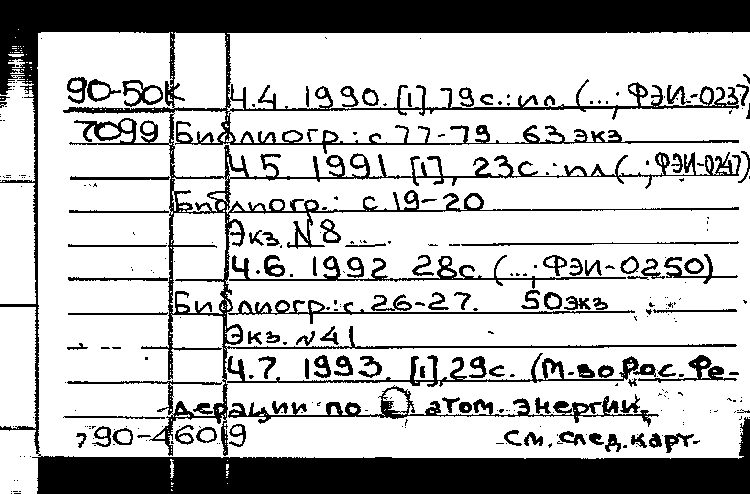 90-50К Ч.4. 1990. [1], 79с.: ил. (...; ФЭИ-0237)
7099 Библиогр.: с 77-79. 63 экз.
Ч.5. 1991 [1], 23с.: ил (...; ФЭИ-0247)
Библиогр.: с.19-20
Экз. N8
Ч.6. 1992 28с. (...; ФЭИ-0250)
Библиогр.: с. 26-27. 50экз
Экз. №41
Ч.7. 1993. [1], 29с. (М-во Рос. Фе-
дерации по атом. энергии,
90-46019 См. след. карт.